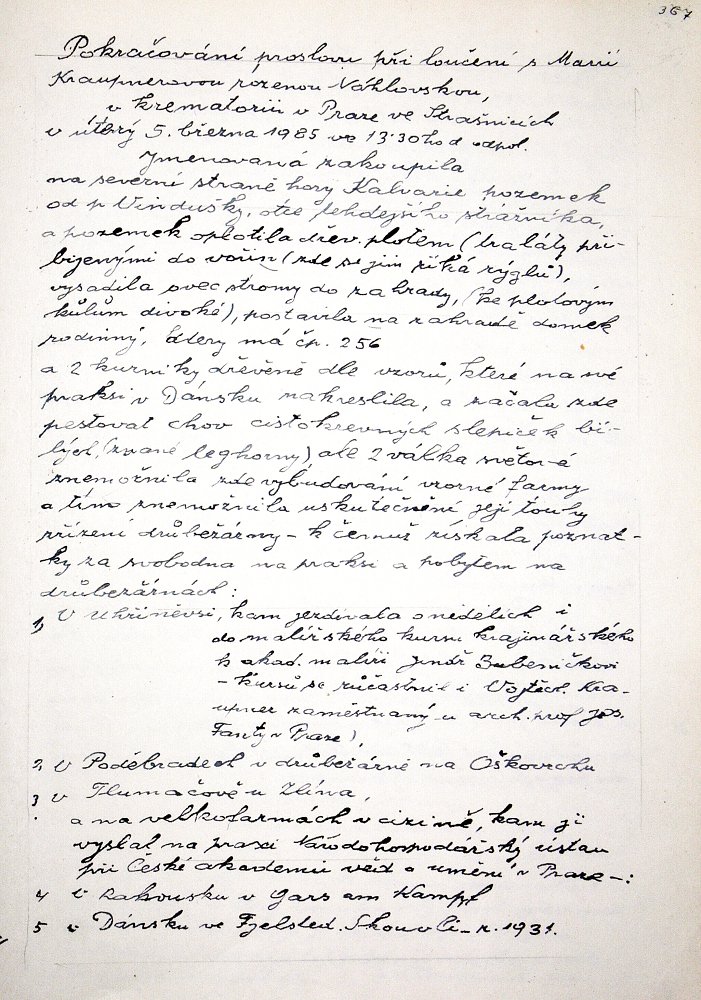 367
Pokračování proslovu při loučení s Marií
Kraupnerovou rozenou Náhlovskou,
v krematoriu v Praze ve Strašnicích
v úterý 5. března 1985 ve 13:30 hod odpol.
Jmenovaná zakoupila
na severní straně hory Kalvarie pozemek
od p Vindušky, otce tehdejšího strážníka,
a pozemek oplotila dřev. plotem (s laťky při-
bijenými do (zde se jim říká rýglů),
vysadila ovoc stromy do zahrady, (ke plotovým
kůlům divoké), postavila na zahradě domek
rodinný, který má čp. 256
a 2 kurniky dřevěné dle vzorů, které na své
praksi v Dánsku nakreslila, a začala zde
pestovat chov cistokrevných slepiček bí-
lých, (zvané leghorny) ale 2 válka světová
znemožnila zde vybudování vzorné farmy
a tím znemožnila uskutečnění její touhy
zřízení drůbežárny - k čemuž získala poznat-
ky za svobodna na praksi a pobytem na
drůbežárnách :
1, V Uhřiněvsi, kam jezdívala o nedělích i
do malířského kursu krajinářského
k akad. malíři Jindř Bubeníčkovi
- kursů se zúčastnil i Vojtěch Kra-
upner zaměstnaný u arch. prof Jos.
Fanty v Praze),
2, V Poděbradech v drůbežárně na Oškovrchu
3 v Tlumačově u Zlína,
a na velkofarmách v cizině, kam ji
vyslal na praxi Národohospodářský ústav
při České akademii věd a umění v Praze - :
4 v Rakousku v Gars am Kampf
5 v Dánsku ve Fjelsted. Skouvli - r. 1931.